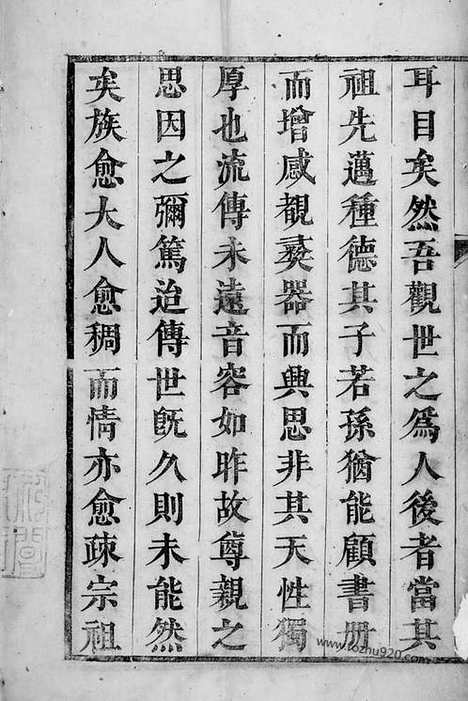 耳目矣然吾觀世之爲人後者當其
祖先邁種德其子若孫猶能顧書冊
而增感覩彝器而興思非其天性獨
厚也流傳未遠音容如昨故尊親之
思因之彌篤迨傳世旣久則未能然
矣族愈大人愈稠而情亦愈疎宗祖
www.tozhu920.com